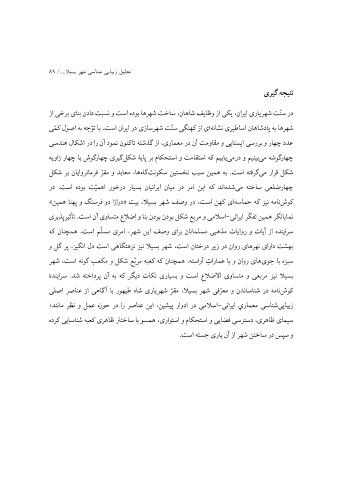 تحلیل زیبایی شناسی شهر بسیلا.../ ۸۹
نتیجه گیری
در سنّت شهریاری ایران، یکی از وظایف شاهان، ساخت شهرها بوده است و نسبت دادن بنای برخی از
شهرها به پادشاهان اساطیری نشانه‌ای از کهنگی سنّت شهرسازی در ایران است. با توّجه به اصول کمّی
عدد چهار و بررسی ایستایی و مقاومت آن در معماری، از گذشته تاکنون نمود آن را در اشکال هندسی
چهارگوشه می‌بینیم و درمی‌یابیم که استقامت و استحکام بر پایهٔ شکل‌گیری چهارگوش با چهار زاویه
شکل قرار می‌گرفته است. به همین سبب نخستین سکونت‌گاه‌ها، معابد و مقرّ فرمانروایان بر شکل
چهارضلعی ساخته می‌شده‌اند که این امر در میان ایرانیان بسیار درخور اهمّیّت بوده است. در
کوش‌نامه نیز که حماسه‌ای کهن است، در وصف شهر بسیلا، بیت «درازا دو فرسنگ و پهنا همین»
نمایانگر همین تفکّر ایرانی-اسلامی و مربع شکل بودن بودن بنا و اضلاع متساوی آن است. تأثیرپذیری
سراینده از آیات و روایات مذهبی مسلمانان برای وصف این شهر، امری مسلّم است. همچنان که
بهشت دارای نهرهای روان در زیر درختان است، شهر بسیلا نیز نزهتگاهی است دل انگیز، پر گل و
سبزه با جوی‌های روان و با عمارات آراسته. همچنان که کعبه مربّع شکل و مکعب گونه است، شهر
بسیلا نیز مربعی و متساوی الاضلاع است و بسیاری نکات دیگر که به آن پرداخته شد. سرایندهٔ
کوش‌نامه در شناساندن و معرّفی شهر بسیلا، مقرّ شهریاری شاه طیهور با آگاهی از عناصر اصلی
زیبایی‌شناسی معماری ایرانی-اسلامی در ادوار پیشین، این عناصر را در حوزه عمل و نظر مانند؛
سیمای ظاهری، دسترسی فضایی و استحکام و استواری، همسو با ساختار ظاهری کعبه شناسایی کرده
و سپس در ساختن شهر از آن یاری جسته است.